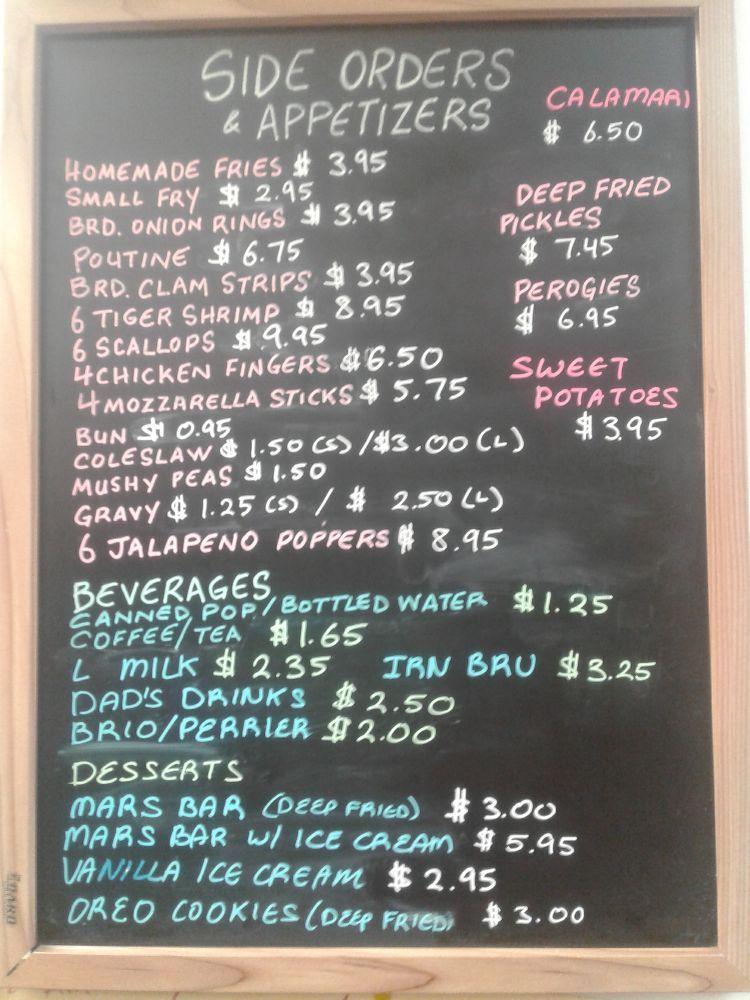 SIDE ORDERS
& APPETIZERS
HOMEMADE FRIES $ 3.95
SMALL FRY $ 2.95
BRD. ONION RINGS $ 3.95
POUTINE $ 6.75
BRD. CLAM STRIPS $ 3.95
6 TIGER SHRIMP $ 8.95
6 SCALLOPS $ 9.95
4 CHICKEN FINGERS $ 6.50
4 MOZZARELLA STICKS $ 5.75
BUN $ 0.95
COLESLAW $ 1.50 (S) / $3.00 (L)
MUSHY PEAS $ 1.50
GRAVY $ 1.25 (S) / $ 2.50 (L)
6 JALAPENO POPPERS $ 8.95
CALAMARI
$ 6.50
DEEP FRIED
PICKLES
$ 7.45
PEROGIES
$ 6.95
SWEET
POTATOES
$ 3.95
BEVERAGES
CANNED POP/BOTTLED WATER $1.25
COFFEE/TEA $1.65
L MILK $ 2.35 IRN BRU $3.25
DAD'S DRINKS $ 2.50
BRIO/PERRIER $2.00
DESSERTS
MARS BAR (DEEP FRIED) $ 3.00
MARS BAR W/ ICE CREAM $ 5.95
VANILLA ICE CREAM $ 2.95
OREO COOKIES (DEEP FRIED) $ 3.00